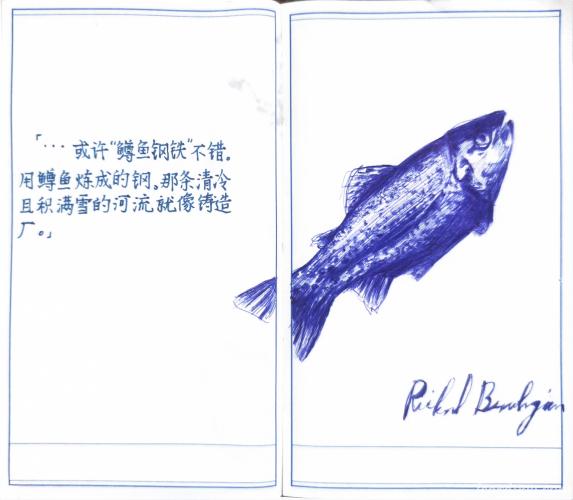 「··· 或许“鳟鱼钢铁”不错。
用鳟鱼炼成的钢。那条清冷
且积满雪的河流就像铸造
厂。」